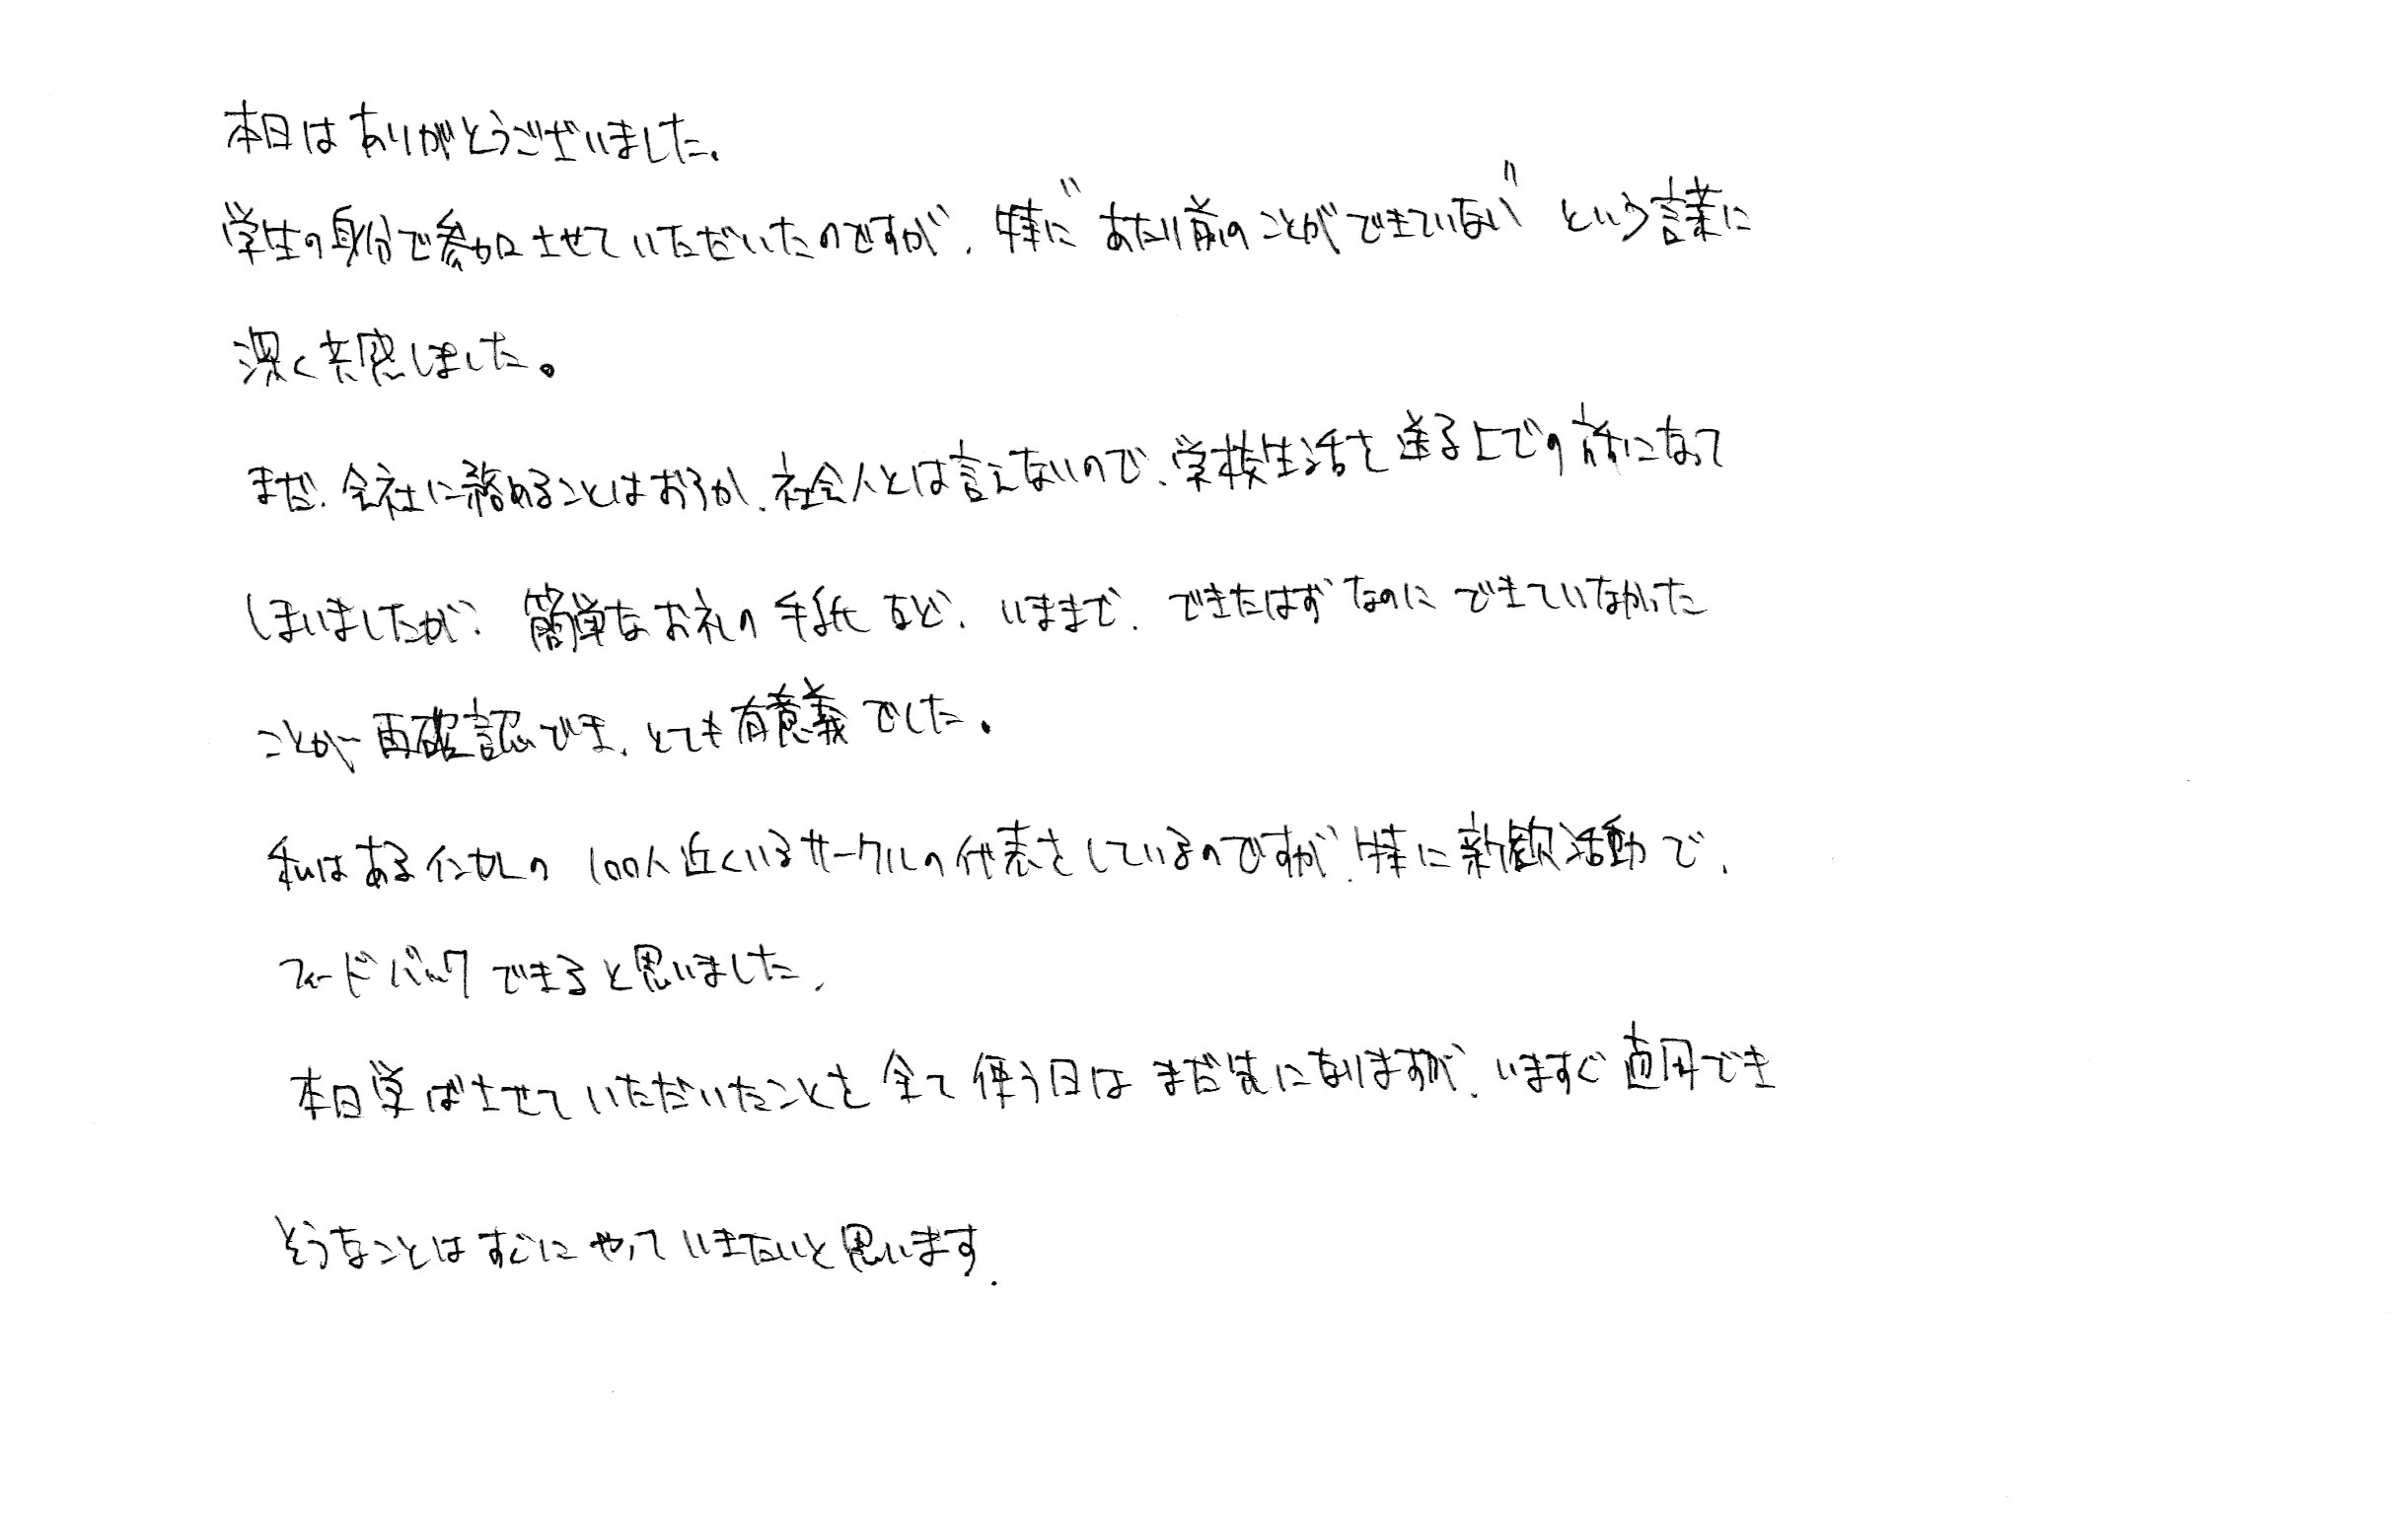 本日はありがとうございました。
学生の身分で参加させていただいたのですが、特に"あたり前のことができていない"という言葉に
深く共感しました。
まだ、会社に務めることはおろか、社会人とは言えないので、学校生活を送る上での話になって
しまいましたが、簡単なお礼の手紙など、いままで、できたはずなのにできていなかった
ことが再確認でき、とても有意義でした。
私はあるインカレの100人近くいるサークルの代表をしているのですが、特に新歓活動で、
フィードバックできると思いました。
本日学ばせていただいたことを全て使う日はまだ先になりますが、いますぐ適用でき
そうなことはすぐにやっていきたいと思います。